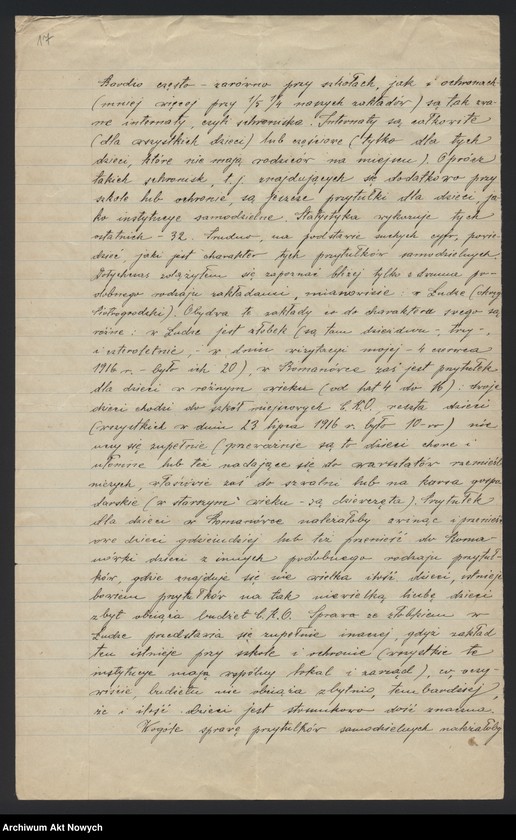 17
Bardzo często – zarówno przy szkołach, jak i ochronach
(mniej więcej przy 1/5 1/4 naszych zakładów) są tak zwa-
ne internaty, czyli schroniska. Internaty są całkowite
(dla wszystkich dzieci) lub częściowe (tylko dla tych
dzieci, które nie mają rodziców na miejscu). Oprócz
takich schronisk, t.j. znajdujących się dodatkowo przy
szkole lub ochronie, są jeszcze przytułki dla dzieci ja-
ko instytucje samodzielne. Statystyka wykazuje tych
ostatnich – 32. Trudno, na podstawie suchych cyfr, powie-
dzieć, jaki jest charakter tych przytułków samodzielnych.
Dotychczas zdążyłem się zapoznać bliżej tylko z dwoma po-
dobnego rodzaju zakładami, mianowicie: w Ludze (okręg
Piotrogrodzki). Obydwa te zakłady co do charakteru swego są
różne: w Ludze jest żłobek (są tam dzieci dwu-, trzy-,
i czteroletnie, – w dniu wizytacji mojej – 4 czerwca
1916 r. – było ich 20), w Romanówce zaś jest przytułek
dla dzieci w różnym wieku (od lat 4 do 16): dwoje
dzieci chodzi do szkół miejscowych C.K.O. reszta dzieci
(wszystkich w dniu 23 lipca 1916 r. było 10-ro) nie
uczy się zupełnie (przeważnie są to dzieci chore i
ułomne lub też nadające się do warsztatów rzemieśl-
niczych, właściwie zaś do szwalni lub na kursa gospo-
darskie (w starszym wieku – są dziewczęta). Przytułek
dla dzieci w Romanówce należałoby zwinąć i przenieść
owe dzieci gdzieindziej lub też przenieść do Roma-
nówki dzieci z innych podobnego rodzaju przytuł-
ków, gdzie znajduje się nie wielka ilość dzieci, istnieje
bowiem przytułków na tak niewielką liczbę dzieci
zbyt obciąża budżet C.K.O. Sprawa ze żłobkiem w
Ludze przedstawia się zupełnie inaczej, gdyż zakład
ten istnieje przy szkole i ochronie (wszystkie te
instytucje mają wspólny lokal i zarząd), w rzeczy-
wiście, budżetu nie obciąża zbytnio, tembardziej,
że i ilość dzieci jest stosunkowo dość znaczna.
Wogóle sprawę przytułków samodzielnych należałoby
Archiwum Akt Nowych